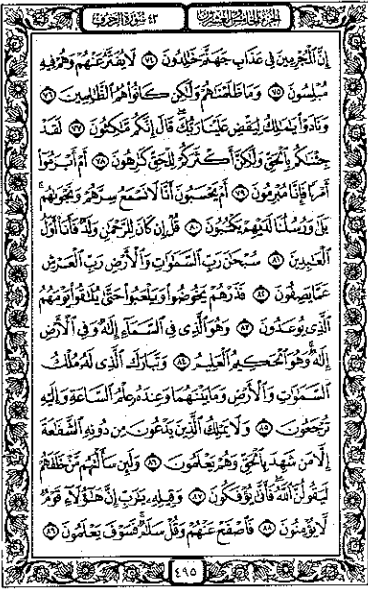 الجزء الخامس والعشرون ٤٣ سورة الزخرف
إِنَّ ٱلْمُجْرِمِينَ فِى عَذَابِ جَهَنَّمَ خَٰلِدُونَ ٧٤ لَا يُفَتَّرُ عَنْهُمْ وَهُمْ فِيهِ
مُبْلِسُونَ ٧٥ وَمَا ظَلَمْنَٰهُمْ وَلَٰكِن كَانُوا۟ هُمُ ٱلظَّٰلِمِينَ ٧٦
وَنَادَوْا۟ يَٰمَٰلِكُ لِيَقْضِ عَلَيْنَا رَبُّكَ ۖ قَالَ إِنَّكُم مَّٰكِثُونَ ٧٧ لَقَدْ
جِئْنَٰكُم بِٱلْحَقِّ وَلَٰكِنَّ أَكْثَرَكُمْ لِلْحَقِّ كَٰرِهُونَ ٧٨ أَمْ أَبْرَمُوٓا۟
أَمْرًا فَإِنَّا مُبْرِمُونَ ٧٩ أَمْ يَحْسَبُونَ أَنَّا لَا نَسْمَعُ سِرَّهُمْ وَنَجْوَىٰهُم ۚ
بَلَىٰ وَرُسُلُنَا لَدَيْهِمْ يَكْتُبُونَ ٨٠ قُلْ إِن كَانَ لِلرَّحْمَٰنِ وَلَدٌ فَأَنَا۠ أَوَّلُ
ٱلْعَٰبِدِينَ ٨١ سُبْحَٰنَ رَبِّ ٱلسَّمَٰوَٰتِ وَٱلْأَرْضِ رَبِّ ٱلْعَرْشِ
عَمَّا يَصِفُونَ ٨٢ فَذَرْهُمْ يَخُوضُوا۟ وَيَلْعَبُوا۟ حَتَّىٰ يُلَٰقُوا۟ يَوْمَهُمُ
ٱلَّذِى يُوعَدُونَ ٨٣ وَهُوَ ٱلَّذِى فِى ٱلسَّمَآءِ إِلَٰهٌ وَفِى ٱلْأَرْضِ
إِلَٰهٌ ۚ وَهُوَ ٱلْحَكِيمُ ٱلْعَلِيمُ ٨٤ وَتَبَارَكَ ٱلَّذِى لَهُۥ مُلْكُ
ٱلسَّمَٰوَٰتِ وَٱلْأَرْضِ وَمَا بَيْنَهُمَا وَعِندَهُۥ عِلْمُ ٱلسَّاعَةِ وَإِلَيْهِ
تُرْجَعُونَ ٨٥ وَلَا يَمْلِكُ ٱلَّذِينَ يَدْعُونَ مِن دُونِهِ ٱلشَّفَٰعَةَ
إِلَّا مَن شَهِدَ بِٱلْحَقِّ وَهُمْ يَعْلَمُونَ ٨٦ وَلَئِن سَأَلْتَهُم مَّنْ خَلَقَهُمْ
لَيَقُولُنَّ ٱللَّهُ ۖ فَأَنَّىٰ يُؤْفَكُونَ ٨٧ وَقِيلِهِۦ يَٰرَبِّ إِنَّ هَٰٓؤُلَآءِ قَوْمٌ
لَّا يُؤْمِنُونَ ٨٨ فَٱصْفَحْ عَنْهُمْ وَقُلْ سَلَٰمٌ ۚ فَسَوْفَ يَعْلَمُونَ ٨٩
٤٩٥